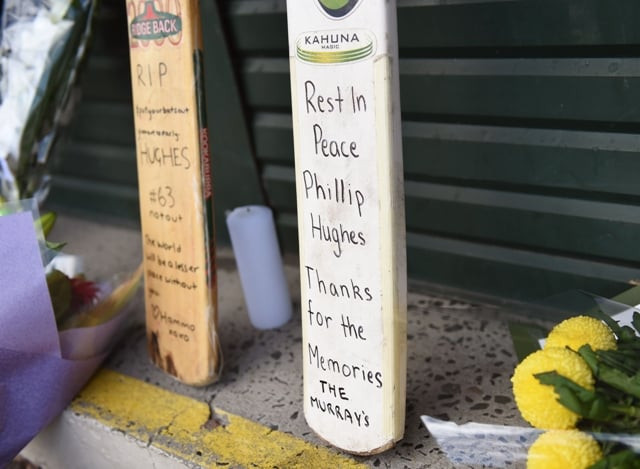 RIDGE BACK
RIP
#putyourbatsout
HUGHES
#63
notout
The world
will be a lesser
place without
you
Hammo
xoxo
KOOKABURRA
KAHUNA
MAGIC
Rest In
Peace
Phillip
Hughes
Thanks
for the
Memories
THE
MURRAY'S